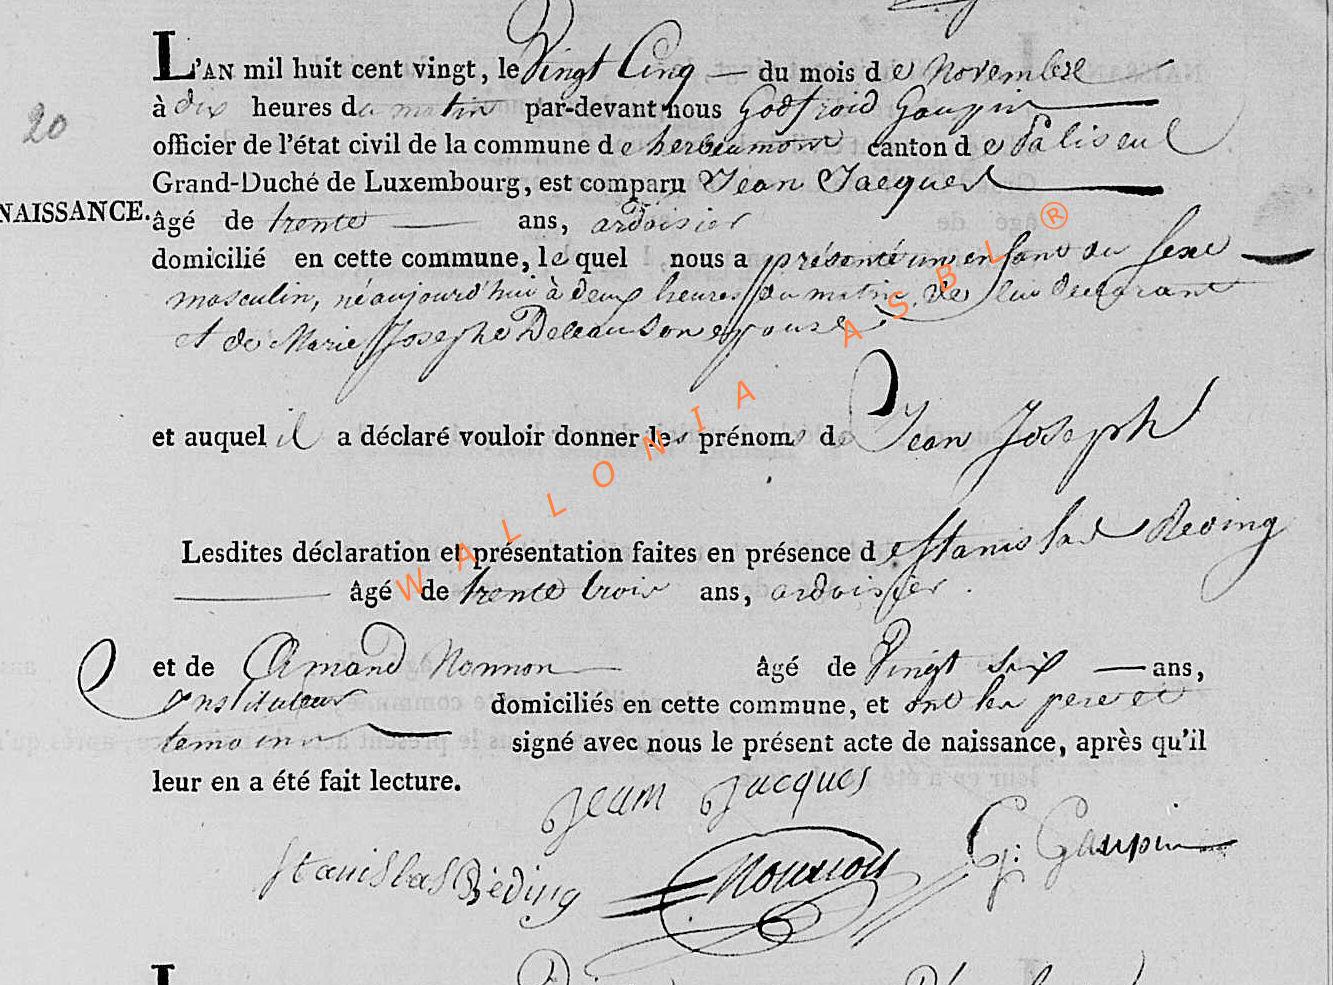 L'AN mil huit cent vingt, le Vingt Cinq — du mois de Novembre
à dix heures du matin par-devant nous Godfroid Goupin
20
officier de l'état civil de la commune de herbeumont canton de Paliseul
Grand-Duché de Luxembourg, est comparu Jean Jacques
NAISSANCE.
âgé de trente — ans, ardoisier
domicilié en cette commune, lequel nous a présenté un enfant du sexe
masculin, né aujourd'hui à deux heures du matin, de lui declarant
et de Marie Josephe Deleau son epouse
et auquel il a déclaré vouloir donner les prénoms de Jean Joseph
Lesdites déclaration et présentation faites en présence de Stanislas Reding
âgé de trente trois ans, ardoisier.
et de Amand Nonnon âgé de Vingt six — ans,
instituteur domiciliés en cette commune, et ont les pere et
temoins signé avec nous le présent acte de naissance, après qu'il
leur en a été fait lecture.
Jean Jacques
Stanislas Reding Nonnon G. Goupin
WALLONIA ASBL ®